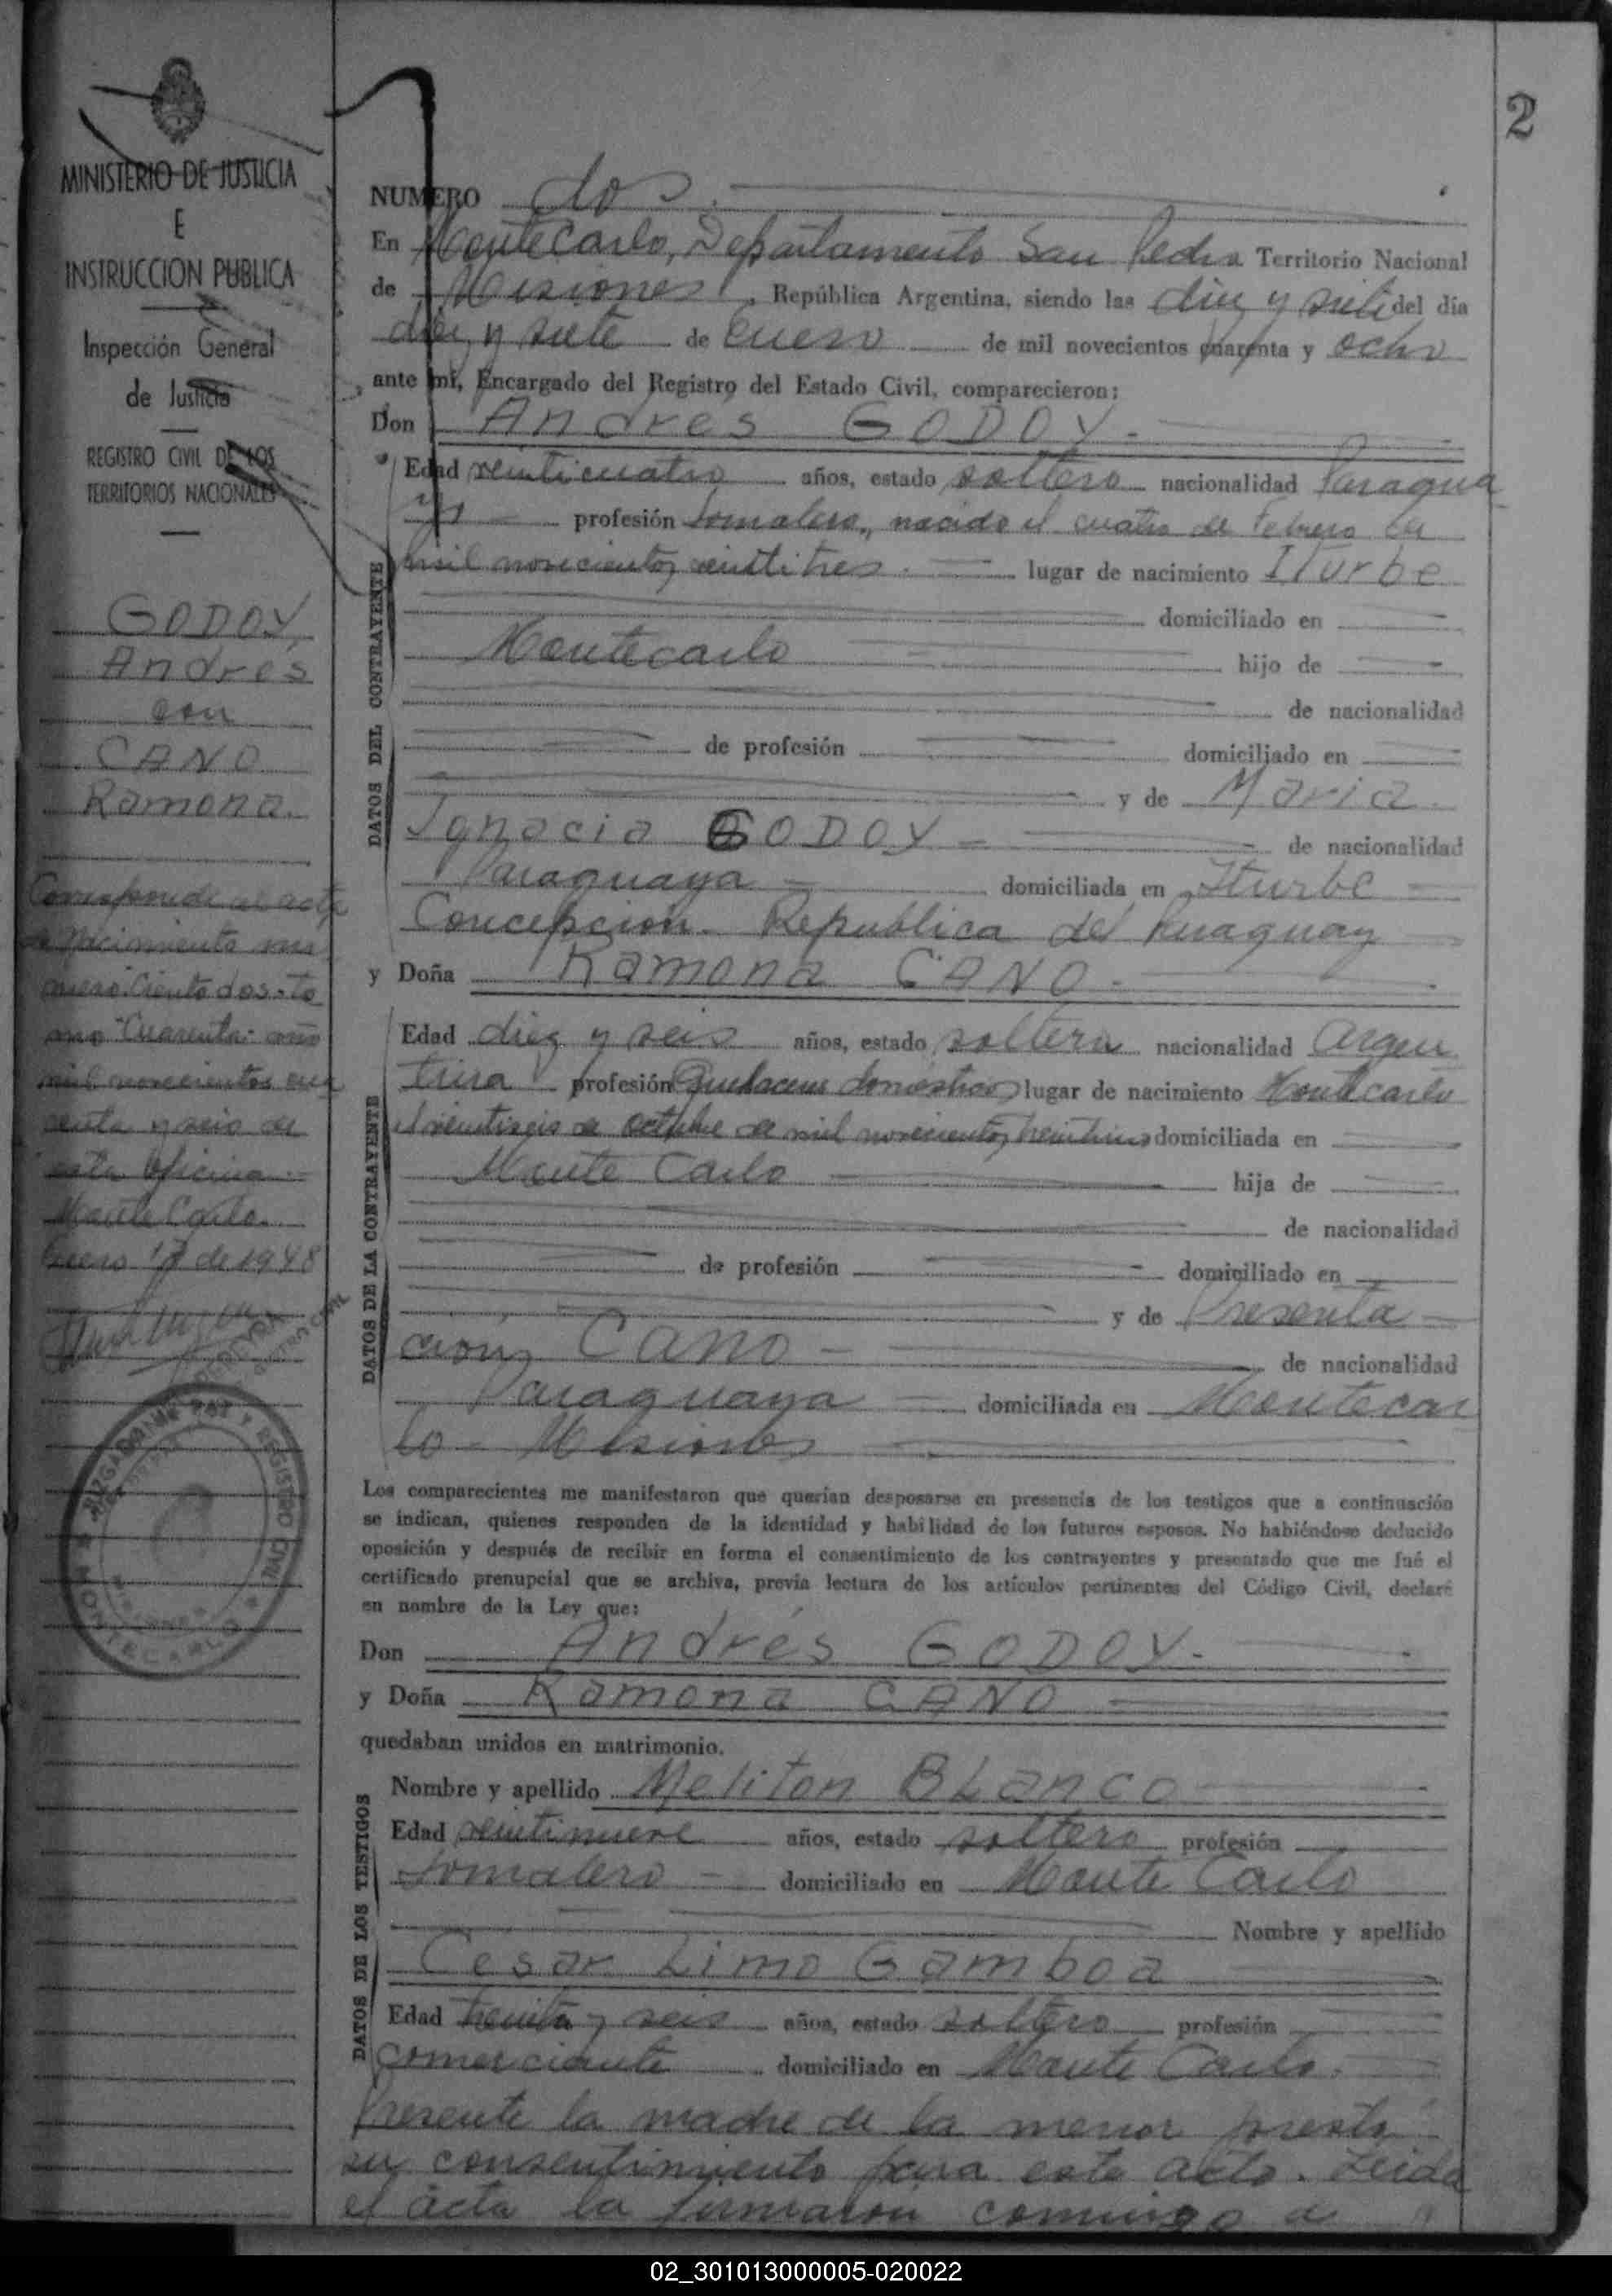 2
MINISTERIO DE JUSTICIA
E
INSTRUCCION PUBLICA
Inspección General
de Justicia
REGISTRO CIVIL DE LOS
TERRITORIOS NACIONALES
GODOY,
Andrés
con
CANO
Ramona.
Corresponde al acta
de Nacimiento nu
mero "Ciento dos" To
mo "Cuarenta" año
mil novecientos cua
renta y seis de
esta oficina.
Monte Carlo.
Enero 17 de 1948
JUZGADO DE PAZ Y REGISTRO CIVIL
MONTECARLO
NUMERO dos.
En MonteCarlo, Departamento San Pedro Territorio Nacional
de Misiones, República Argentina, siendo las diez y siete del día
diez y siete de Enero de mil novecientos cuarenta y ocho
ante mí, Encargado del Registro del Estado Civil, comparecieron:
Don Andrés GODOY.
Edad veinticuatro años, estado soltero nacionalidad Paragua
yo profesión Jornalero, nacido el cuatro de Febrero de
mil novecientos veintitres. lugar de nacimiento ITurbe
domiciliado en
Montecarlo hijo de
de nacionalidad
de profesión domiciliado en
y de Maria
Ignacia GODOY de nacionalidad
Paraguaya domiciliada en Iturbe
Concepcion. Republica del Paraguay
y Doña Ramona CANO.
Edad diez y seis años, estado soltera nacionalidad Argen
tina profesión Quehaceres domésticos lugar de nacimiento Montecarlo
el veintiseis de octubre de mil novecientos treintiuno domiciliada en
Monte Carlo hija de
de nacionalidad
de profesión domiciliado en
y de Presenta
ción Cano de nacionalidad
Paraguaya domiciliada en Montecar
lo - Misiones
Los comparecientes me manifestaron que querían desposarse en presencia de los testigos que a continuación
se indican, quienes responden de la identidad y habilidad de los futuros esposos. No habiéndose deducido
oposición y después de recibir en forma el consentimiento de los contrayentes y presentado que me fué el
certificado prenupcial que se archiva, previa lectura de los artículos pertinentes del Código Civil, declaré
en nombre de la Ley que:
Don Andrés GODOY.
y Doña Ramona CANO
quedaban unidos en matrimonio.
Nombre y apellido Meliton BLanco
Edad veintinueve años, estado soltero profesión
Jornalero domiciliado en Monte Carlo
Nombre y apellido
Cesar Limo Gamboa
Edad treinta y seis años, estado soltero profesión
comerciante domiciliado en Monte Carlo.
Presente la madre de la menor presta
su consentimiento para este acto. Leida
el acta la firmaron conmigo
DATOS DEL CONTRAYENTE
DATOS DE LA CONTRAYENTE
DATOS DE LOS TESTIGOS
02_301013000005-020022